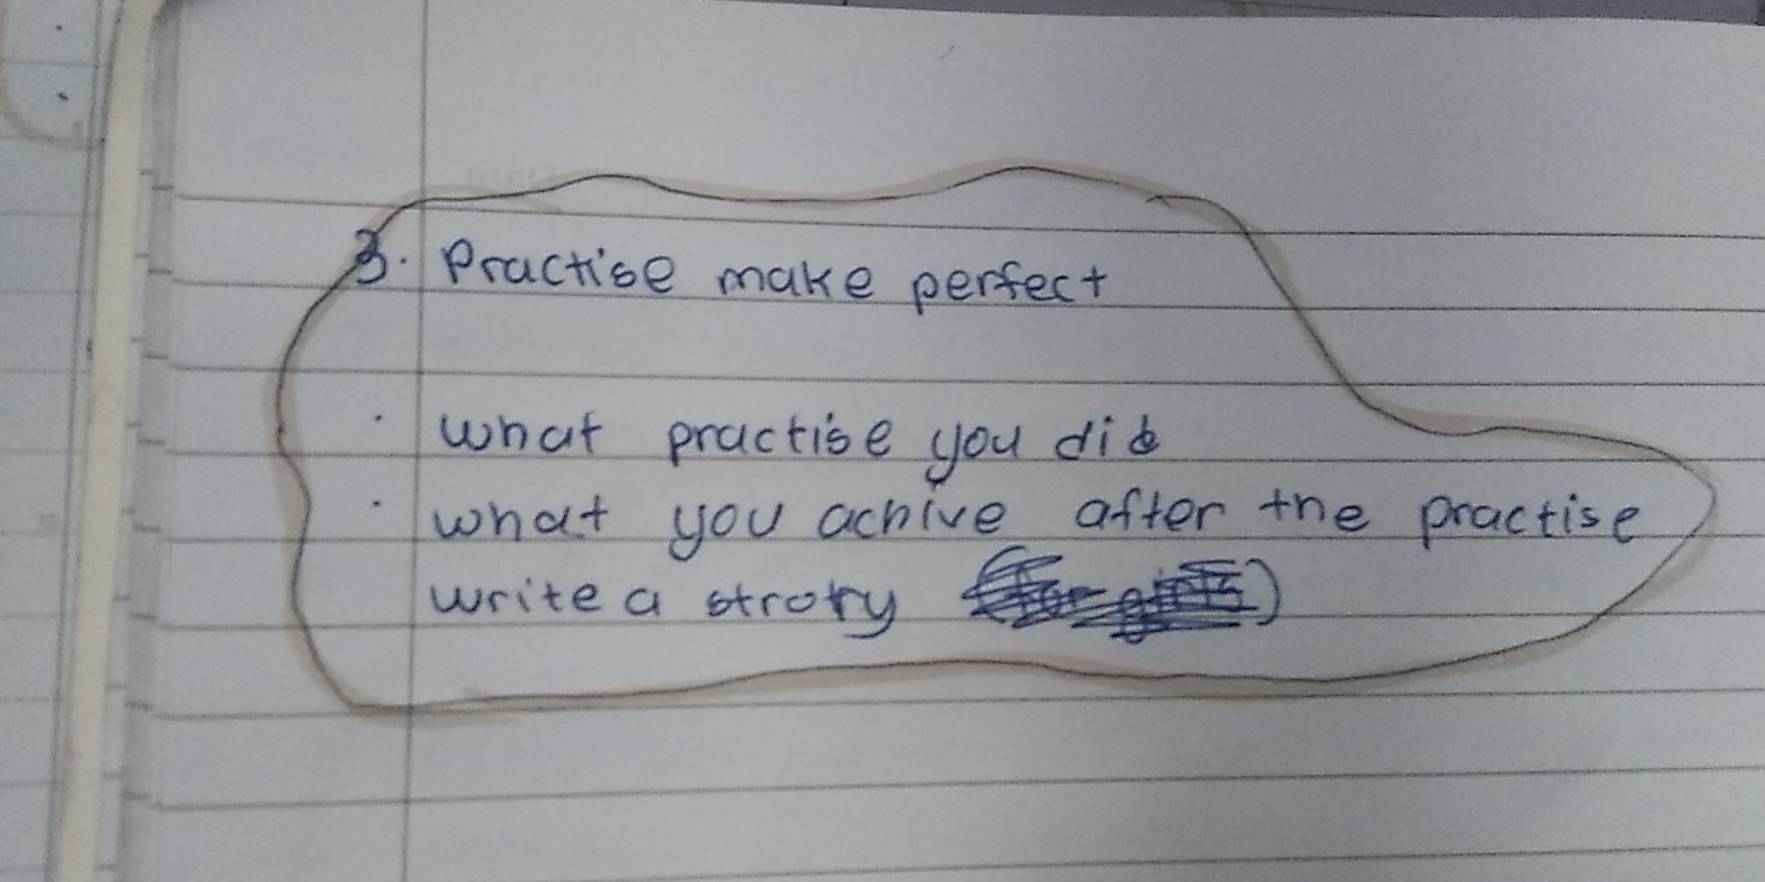 3. Practise make perfect
· what practise you did
· what you achive after the practise
write a strory